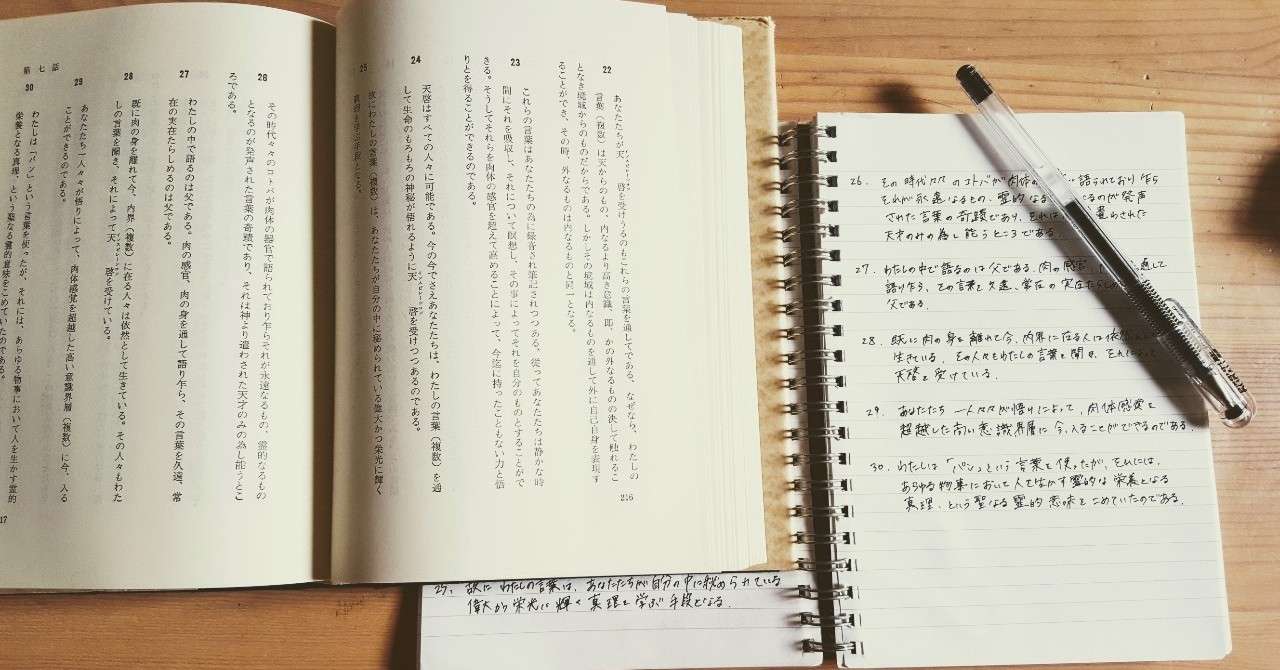 216
22
あなたたちが天啓を受けうるのもこれらの言葉を通してである、なぜなら、わたしの
言葉（複数）は天からのもの、内なるより高き意識、即、かの外なるものの決して触れるこ
となき境域からのものだからである。しかしその境域は内なるものを通して外に自己自身を表現す
ることができ、その時、外なるものは内なるものと同一となる。
23
これらの言葉はあなたたちの為に録音され筆記されつつある。従ってあなたたちは静かな時
間にそれを吸収し、それについて瞑想し、その事によってそれを自分のものとすることがで
きる。そうしてそれらを肉体の感官を超えて高めることによって、今迄に持ったこともない力と悟
りとを得ることができるのである。
24
天啓はすべての人々に可能である。今の今でさえあなたたちは、わたしの言葉（複数）を通
して生命のもろもろの神秘が悟れるように天啓を受けつつあるのである。
25
故にわたしの言葉（複数）は、あなたたちが自分の中に秘められている偉大かつ栄光に輝く
真理を学ぶ手段となる。
26
その時代々々のコトバが肉体の器官で語られており乍らそれが永遠なるもの、霊的なるもの
となるのが発声された言葉の奇積であり、それは神より遣わされた天才のみの為し能うとこ
ろである。
27
わたしの中で語るのは父である。肉の感官、肉身を通して語り乍ら、その言葉を久遠、常
在の実在たらしめるのは父である。
28
既に肉の身を離れて今、内界（複数）に在る人々は依然として生きている。その人々もわた
しの言葉を聞き、それによって天啓を受けている。
29
あなたたち一人々々が悟りによって、肉体感覚を超越した高い意識界層（複数）に今、入る
ことができるのである。
第七話
30
わたしは「パン」という言葉を使ったが、それには、あらゆる物事において人を生かす霊的
栄養となる真理、という聖なる霊的意味をこめていたのである。
17
25. 故に わたしの言葉は、あなたたちが自分の中に秘められている
偉大かつ栄光に輝く真理を学ぶ手段となる.
26. その時代々々のコトバが肉体の 語られており乍ら
それが永遠なるもの、霊的なる るのが発声
された言葉の奇蹟であり、それは 遣わされた
天才のみの為し能うところである.
27. わたしの中で語るのは父である. 肉の感官、 通して
語り乍ら、その言葉を久遠、常在の実在たらし
父である.
28. 既に肉の身を離れて今、内界に在る人は依
生きている. その人々もわたしの言葉を聞き、それによって
天啓を受けている.
29. あなたたち一人々々が悟りによって、肉体感覚を
超越した高い意識界層に今、入ることができるのである.
30. わたしは「パン」という言葉を使ったが、それには、
あらゆる物事において人を生かす霊的な栄養となる
真理、という聖なる霊的意味をこめていたのである.